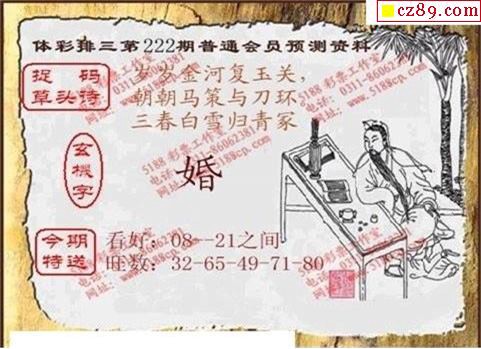 cz89.com
体彩排三第222期普通会员预测资料
捉 码
草头诗
岁岁金河复玉关，
朝朝马策与刀环，
三春白雪归青冢
玄機字
婚
今期
特送
看好：08--21之间
旺数：32-65-49-71-80
5188 彩票工作室
电话：0311-86062381
网址：www.5188cp.com